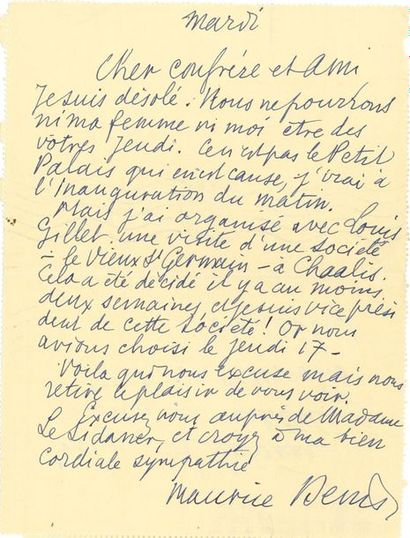 mardi
Cher confrère et Ami
Je suis désolé. Nous ne pourrons
ni ma femme ni moi être des
votres Jeudi. Ce n'est pas le Petit
Palais qui en est cause, j'irai à
l'Inauguration du matin.
Mais j'ai organisé avec Louis
Gillet une visite d'une société
- le Vieux St Germain - à Chaalis.
Cela a été décidé il y a au moins
deux semaines, et je suis vice prési
dent de cette société! Or nous
avions choisi le jeudi 17 -
Voila qui nous excuse mais nous
retire le plaisir de vous voir.
Excusez nous auprès de Madame
Le Sidaner, et croyez à ma bien
cordiale sympathie
Maurice Denis